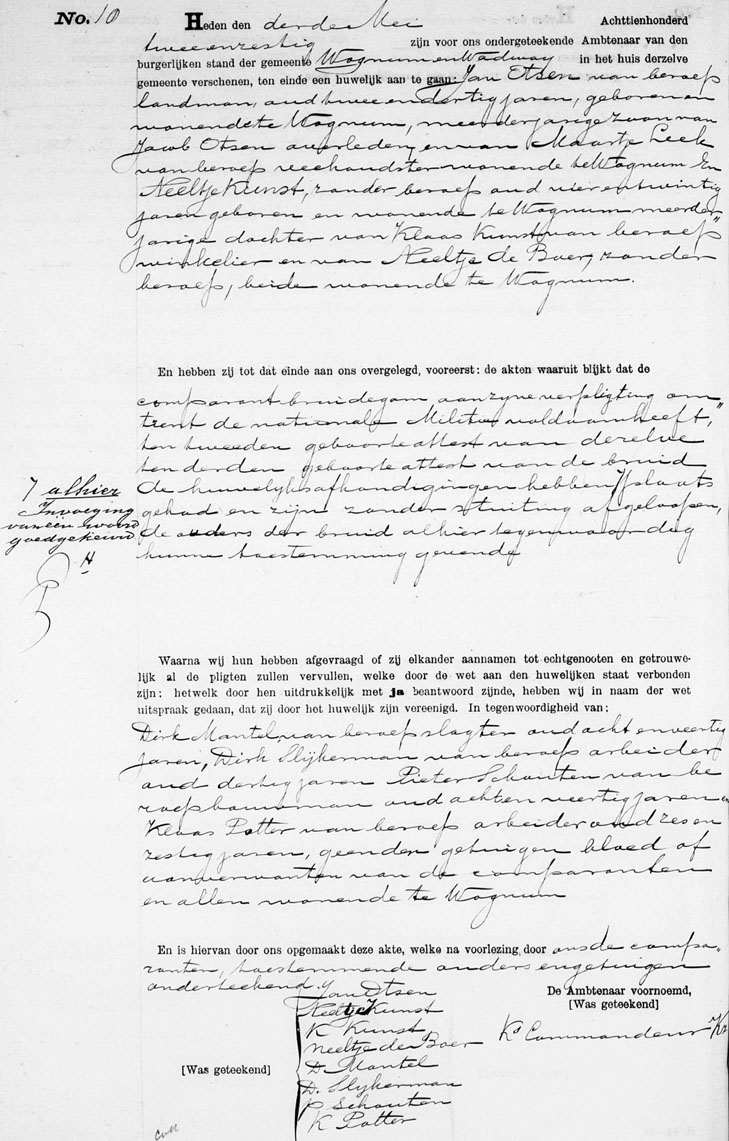 No. 10
Heden den derde Mei Achttienhonderd
twee en zestig zijn voor ons ondergeteekende Ambtenaar van den
burgerlijken stand der gemeente Wognum en Wadway in het huis derzelve
gemeente verschenen, ten einde een huwelijk aan te gaan: Jan Otsen van beroep
landman, oud twee en dertig jaren, geboren en
wonende te Wognum, meerderjarige zoon van
Jacob Otsen overleden, en van Maartje Leek
van beroep veehoudster wonende te Wognum En
Neeltje Kunst, zonder beroep oud vier en twintig
jaren geboren en wonende te Wognum meerder"
jarige dochter van Klaas Kunst, van beroep
winkelier en van Neeltje de Boer, zonder
beroep, beide wonende te Wognum.
En hebben zij tot dat einde aan ons overgelegd, vooreerst: de akten waaruit blijkt dat de
comparant bruidegom aan zyne verpligting om"
trent de nationale Militie voldaan heeft,
ten tweeden geboorte attest van dezelve
ten derden geboorte attest van de bruid
de huwelyksafkondigingen hebben 7 plaats
gehad en zijn zonder stuiting afgeloopen,
de ouders der bruid alhier tegenwoordig
hunne toestemming gevende
7 alhier
Invoeging
van één woord
goedgekeurd
H
Waarna wij hun hebben afgevraagd of zij elkander aannamen tot echtgenooten en getrouwe-
lijk al de pligten zullen vervullen, welke door de wet aan den huwelijken staat verbonden
zijn: hetwelk door hen uitdrukkelijk met ja beantwoord zijnde, hebben wij in naam der wet
uitspraak gedaan, dat zij door het huwelijk zijn vereenigd. In tegenwoordigheid van:
Dirk Mantel, van beroep slagter oud acht en veertig
jaren, Dirk Slijkerman van beroep arbeider
oud dertig jaren Pieter Schouten van be
roep bouwman oud acht en veertig jaren en
Klaas Potter van beroep arbeider oud zes en
zestig jaren, geen den getuigen bloed of
aanverwanten van de comparanten
en allen wonende te Wognum
En is hiervan door ons opgemaakt deze akte, welke na voorlezing door ons de compa"
ranten, toestemmende ouders en getuigen
onderteekend.
Jan Otsen
Neeltje Kunst
K Kunst
Neeltje de Boer
D. Mantel
D. Slijkerman
P Schouten
K Potter
[Was geteekend]
De Ambtenaar voornoemd,
[Was geteekend]
Ks Commandeur